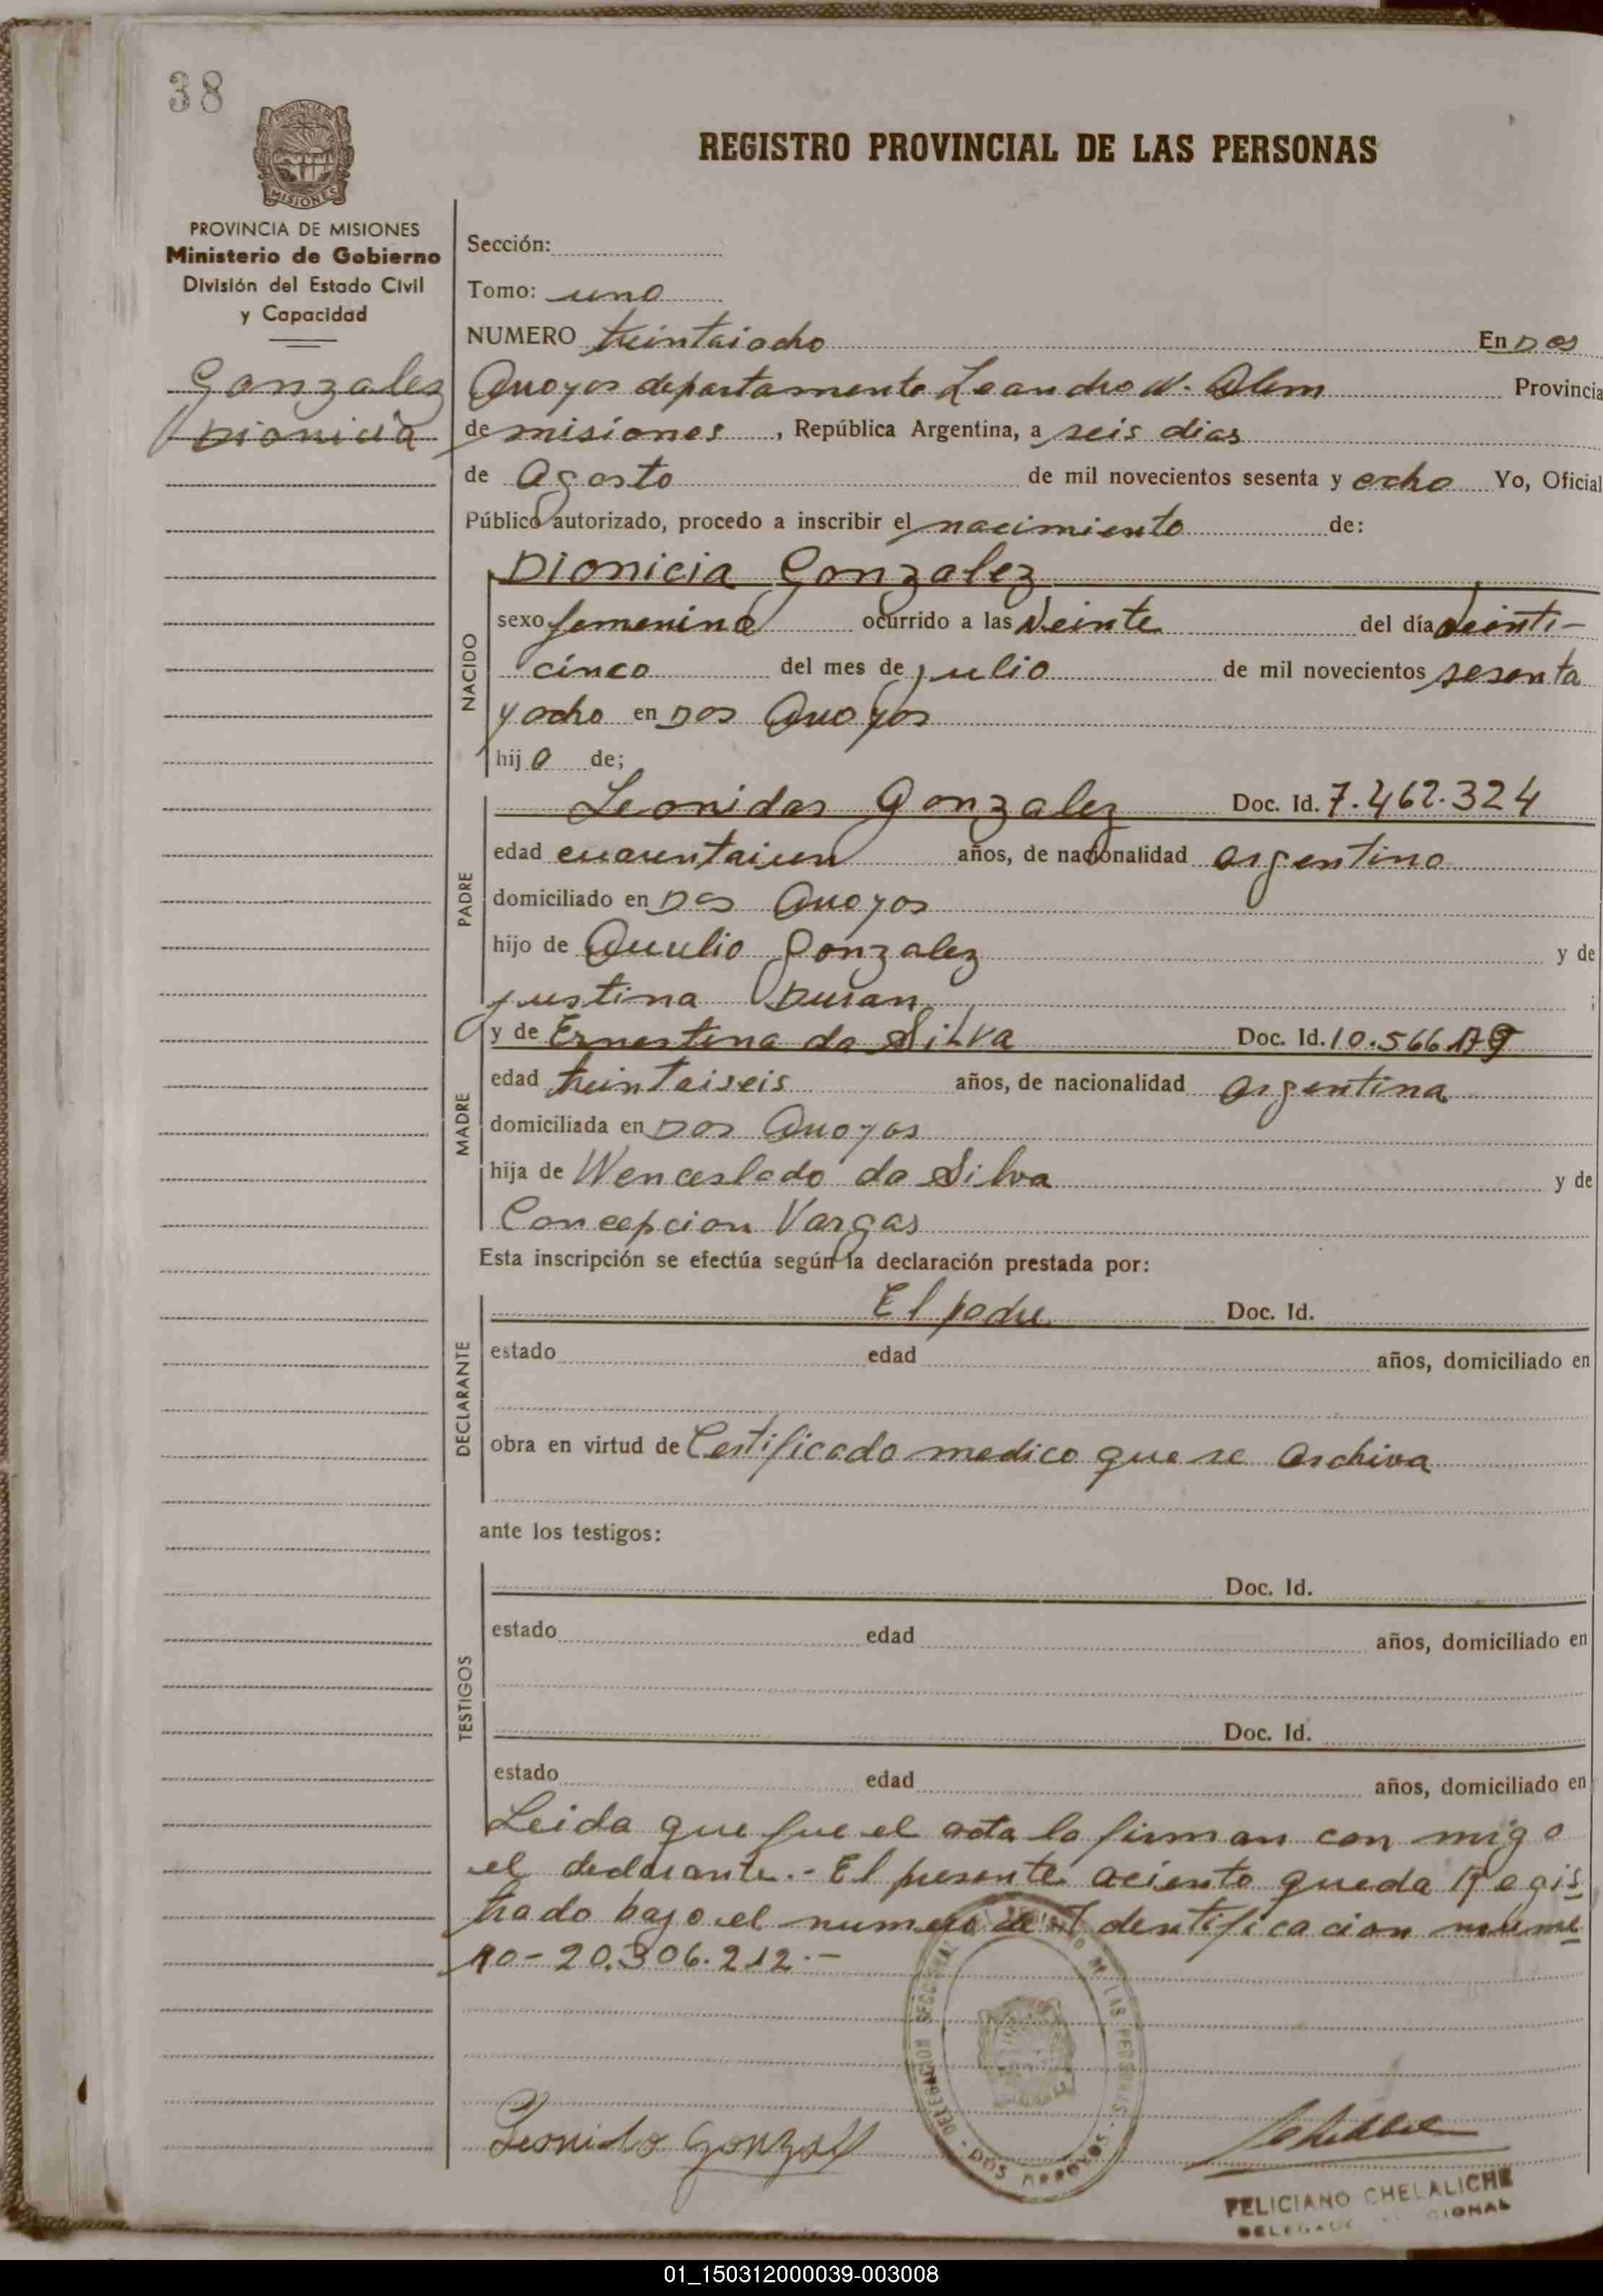 38
PROVINCIA DE
MISIONES
REGISTRO PROVINCIAL DE LAS PERSONAS
PROVINCIA DE MISIONES
Ministerio de Gobierno
División del Estado Civil
y Capacidad
Gonzalez
Dionicia
Sección:
Tomo: uno
NUMERO treintaiocho En Dos
Arroyos departamento Leandro N. Alem Provincia
de misiones, República Argentina, a seis dias
de Agosto de mil novecientos sesenta y ocho Yo, Oficial
Público autorizado, procedo a inscribir el nacimiento de:
NACIDO
Dionicia Gonzalez
sexo femenino ocurrido a las Veinte del día veinti-
cinco del mes de julio de mil novecientos sesenta
y ocho en Dos Arroyos
hija de;
PADRE
Leonidas Gonzalez Doc. Id. 7.462.324
edad cuarentaiun años, de nacionalidad argentino
domiciliado en Dos Arroyos
hijo de Aurelio Gonzalez y de
justina Duran ;
MADRE
y de Ernestina da Silva Doc. Id. 10.566.179
edad treintaiseis años, de nacionalidad argentina
domiciliada en Dos Arroyos
hija de Wenceslado da Silva y de
Concepcion Vargas
Esta inscripción se efectúa según la declaración prestada por:
DECLARANTE
El padre Doc. Id.
estado edad años, domiciliado en
obra en virtud de Certificado medico que se archiva
ante los testigos:
TESTIGOS
Doc. Id.
estado edad años, domiciliado en
Doc. Id.
estado edad años, domiciliado en
Leida que fue el acta la firman con migo
el declarante.- El presente aciento queda Regis
trado bajo el numero de Identificacion nume
ro- 20.306.212.-
DELEGACION SECCIONAL DE LAS PERSONAS
DOS ARROYOS
Leonido Gonzalez
FELICIANO CHELALICHE
01_150312000039-003008